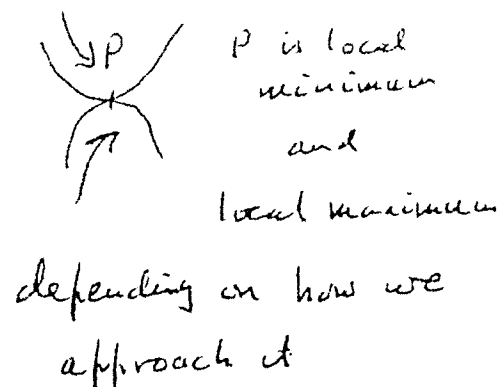 P
P is local
minimum
and
local maximum
depending on how we
approach it